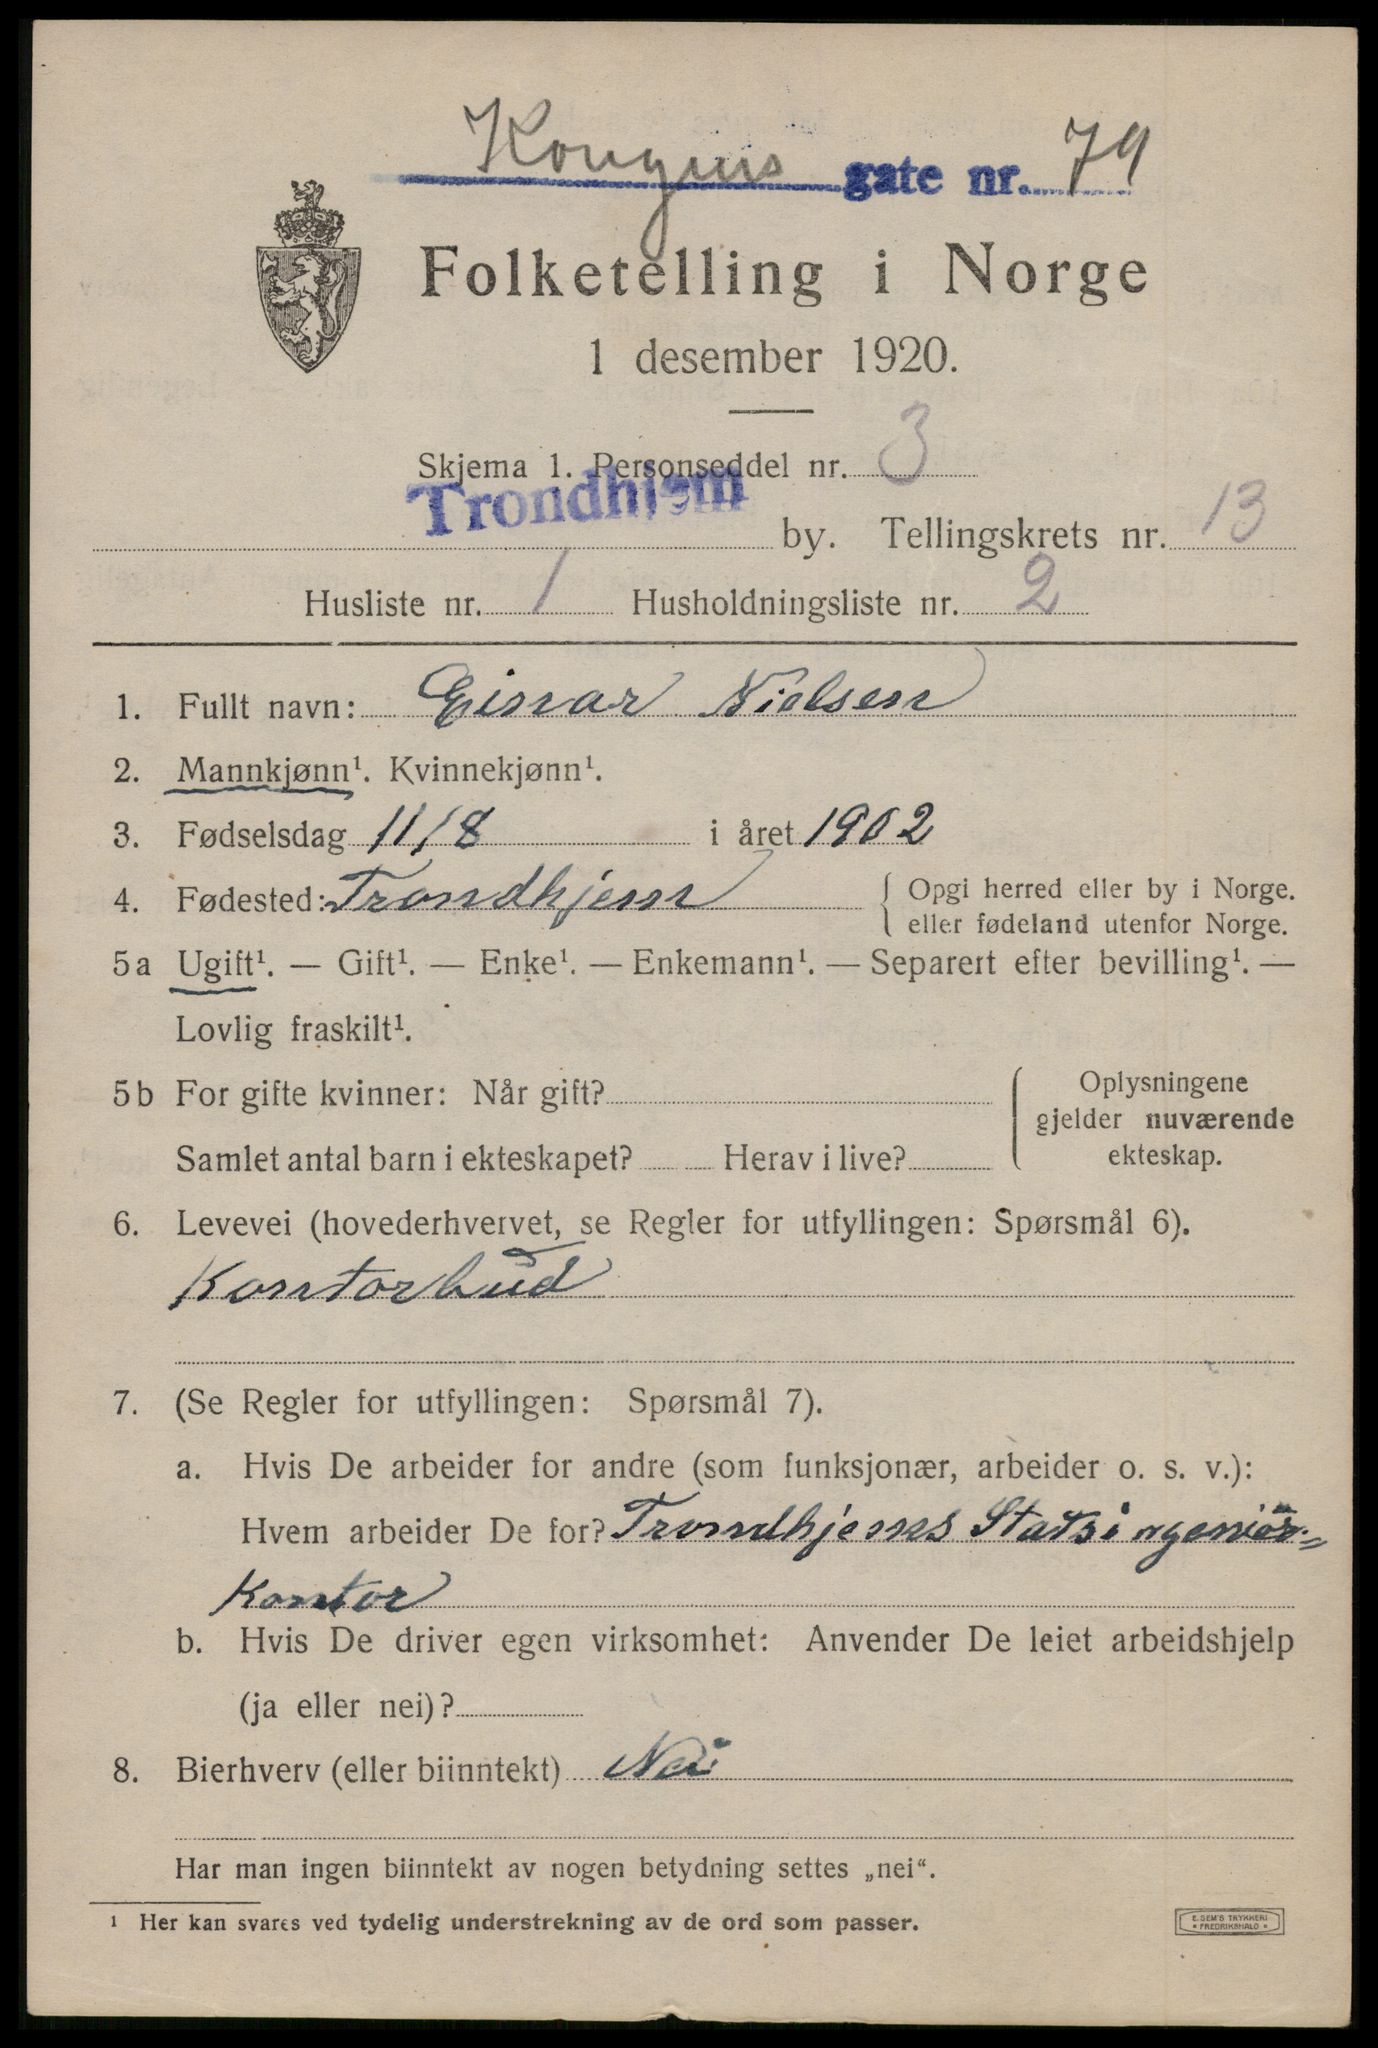 Kongens gate nr. 79
Folketelling i Norge
1 desember 1920.
Skjema 1. Personseddel nr. 3
Trondhjem by. Tellingskrets nr. 13
Husliste nr. 1 Husholdningsliste nr. 2
1. Fullt navn: Einar Nielsen
2. Mannkjønn¹. Kvinnekjønn¹.
3. Fødselsdag 11/8 i året 1902
4. Fødested: Trondhjem { Opgi herred eller by i Norge.
eller fødeland utenfor Norge.
5a Ugift¹. — Gift¹. — Enke¹. — Enkemann¹. — Separert efter bevilling¹. —
Lovlig fraskilt¹.
5b For gifte kvinner: Når gift?
Samlet antal barn i ekteskapet? Herav i live?
Oplysningene
gjelder nuværende
ekteskap.
6. Levevei (hovederhvervet, se Regler for utfyllingen: Spørsmål 6).
Kontorbud
7. (Se Regler for utfyllingen: Spørsmål 7).
a. Hvis De arbeider for andre (som funksjonær, arbeider o. s. v.):
Hvem arbeider De for? Trondhjems Statsingeniør-
Kontor
b. Hvis De driver egen virksomhet: Anvender De leiet arbeidshjelp
(ja eller nei)?
8. Bierhverv (eller biinntekt) Nei
Har man ingen biinntekt av nogen betydning settes „nei“.
¹ Her kan svares ved tydelig understrekning av de ord som passer.
E. SEM'S TRYKKERI
• FREDRIKSHALD •